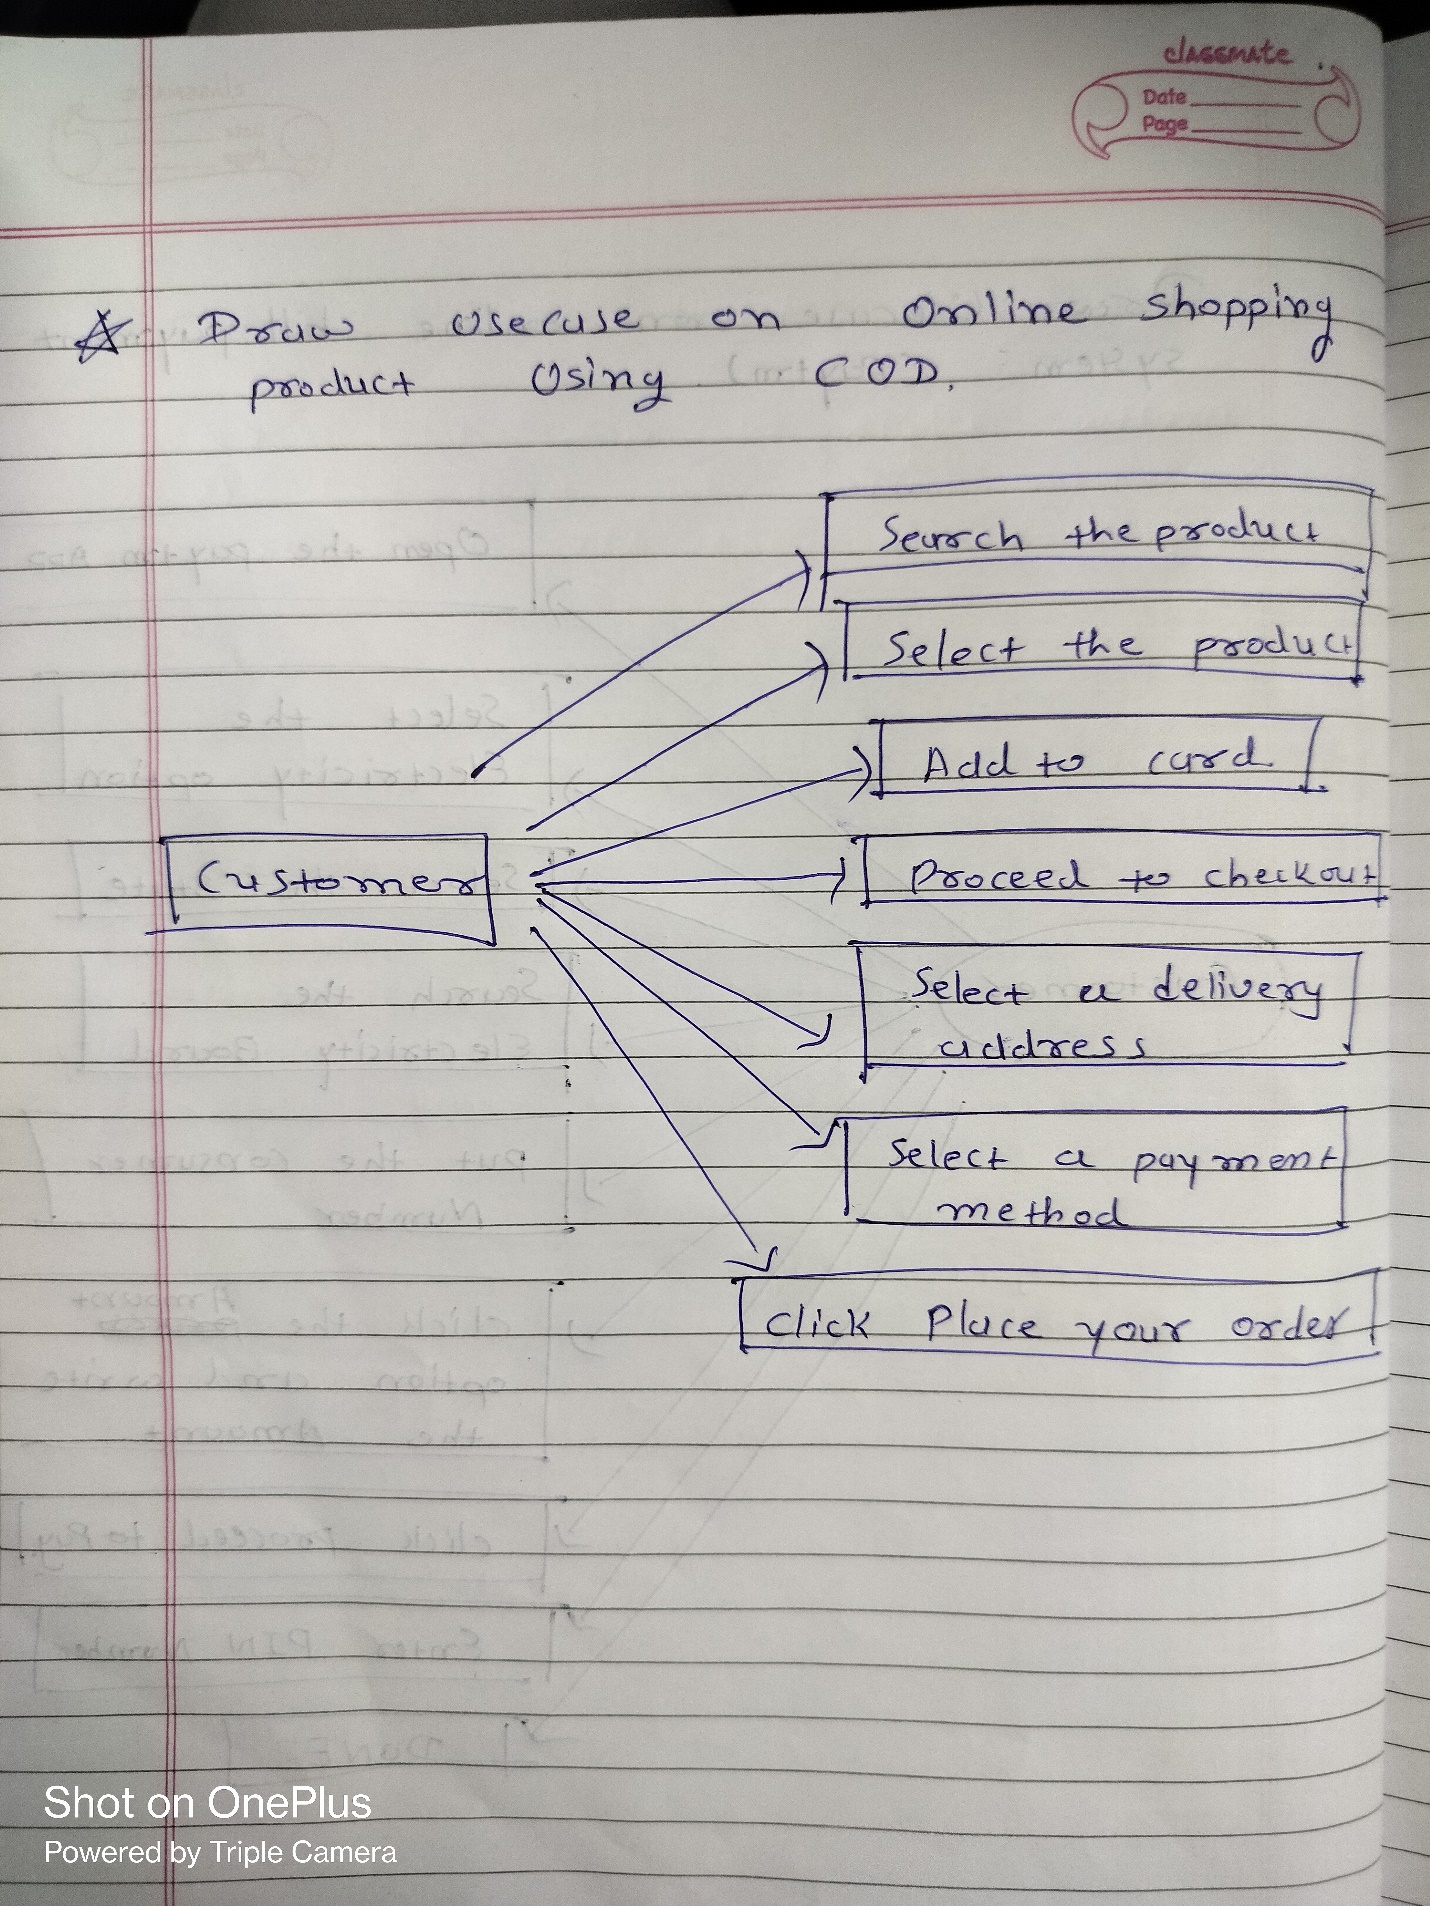 classmate
Date
Page
Draw usecase on Online shopping
product Using COD.
Search the product
Select the product
Add to card
Customer
Proceed to checkout
Select a delivery
address
Select a payment
method
Click Place your order
Shot on OnePlus
Powered by Triple Camera